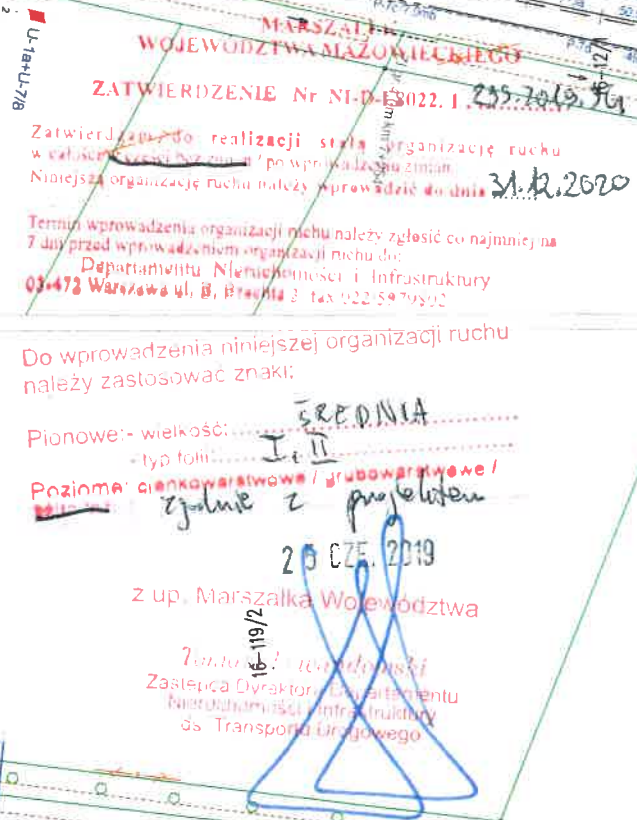 P-7c
7.5mb
P-7d
50
16-12/1
U-1a+U-7/8
MARSZAŁEK
WOJEWÓDZTWA MAZOWIECKIEGO
ZATWIERDZENIE Nr NI-D-I.8022.1.
Zatwierdzam do realizacji stałą organizację ruchu
w całości / części bez zmian / po wprowadzeniu zmian.
Niniejszą organizację ruchu należy wprowadzić do dnia 31.12.2020
Termin wprowadzenia organizacji ruchu należy zgłosić co najmniej na
7 dni przed wprowadzeniem organizacji ruchu do:
Departamentu Nieruchomości i Infrastruktury
03-472 Warszawa ul. B. Brechta 3 fax 022 5979802
Do wprowadzenia niniejszej organizacji ruchu
należy zastosować znaki:
Pionowe:- wielkość: ŚREDNIA
- typ folii: I, II
Poziome: cienkowarstwowe / grubowarstwowe /
zgodnie z projektem
25 CZE. 2019
z up. Marszałka Województwa
16-119/2
Zastępca Dyrektora Departamentu
Nieruchomości i Infrastruktury
ds. Transportu Drogowego